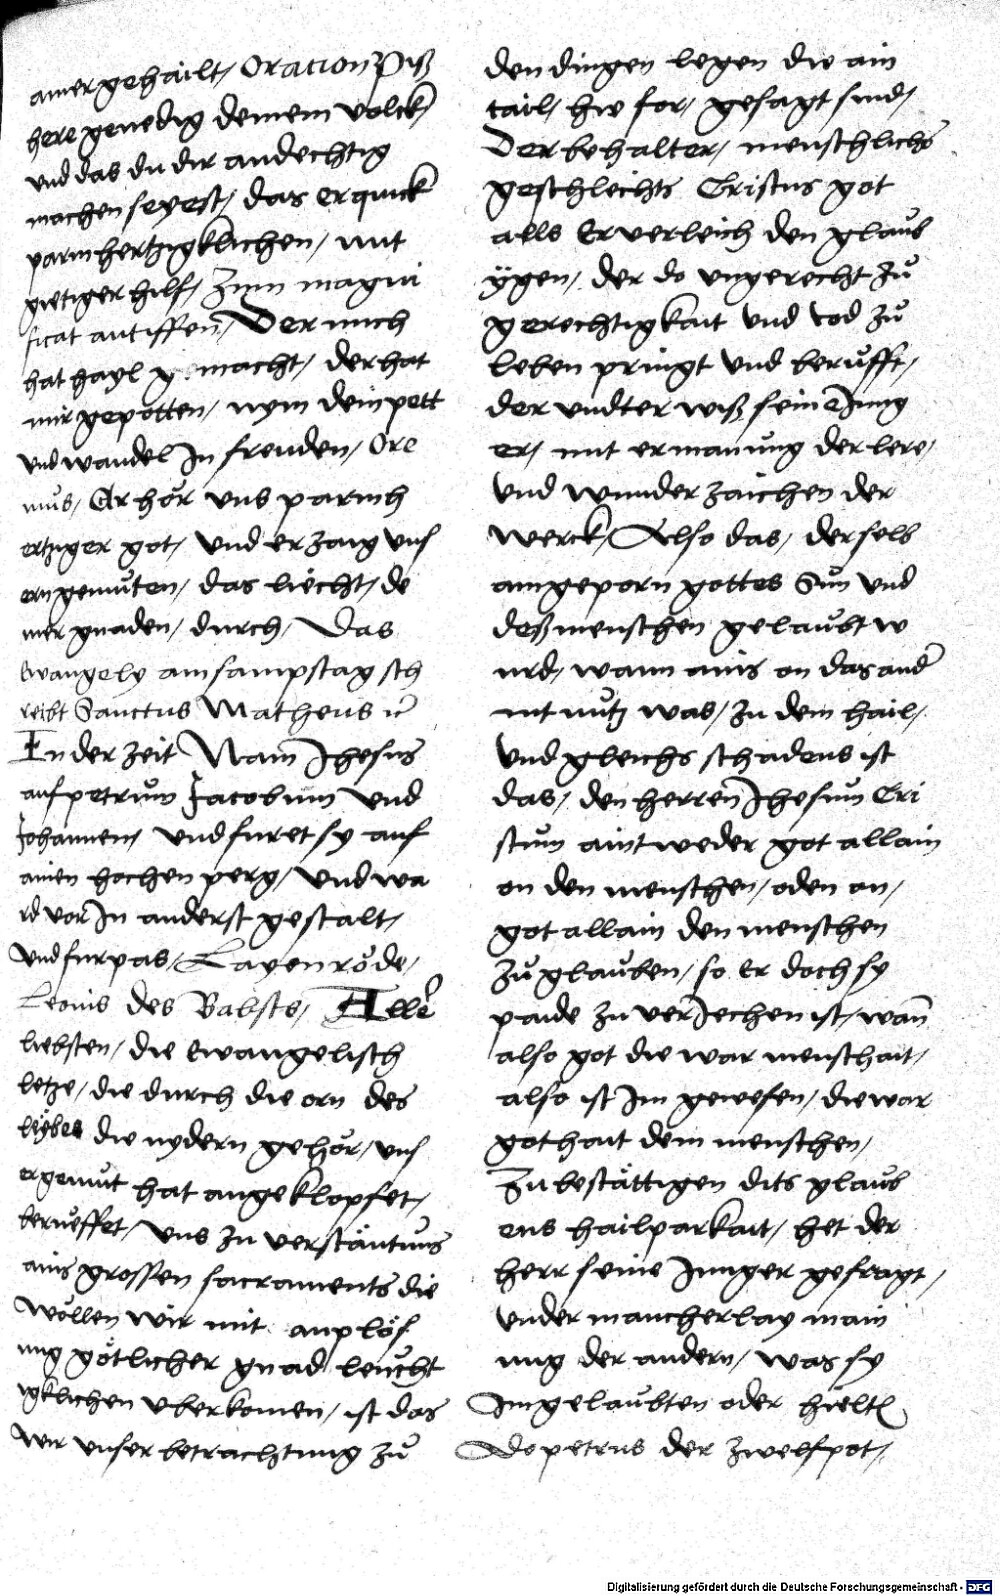 ainer gehailt, Oration Piß
here genedig deinem volck,
und das du dir andechtig
machen seyest, das erquick
parmhertzigklichen, mit
gietiger hilf, Zum magni
ficat antiffen, Der mich
hat hayl gemacht, der hat
mir gepotten, nym dein pett
und wandel In freuden, Ore
mus, Erhör uns parmh
ertziger got, und erzaig uns
ern gemüten, das liecht, de
iner gnaden, durch, Das
Ewangely am sampstag sch
reibt Sanctus Matheus
In der zeit Nam Jhesus
auf petrum Jacobum und
Johannem, und furet sy auf
ainen hochen perg, und wa
rd vor In anderst gestalt,
und furpas, Layenröde,
Leonis des Babsts, Aller
liebsten, die ewangelisch
letze, die durch die orn des
leybes die nydern gehör, uns
er gemüt hat angeklopfet,
berueffet, uns zu verstäntnus
ains grossen sacraments die
wöllen wir mit anplös
ung götlicher gnad leücht
igklichen uberkomen, ist das
wir unser betrachtung zů
den dingen legen die ain
tail, hie for, gesagt sind,
Der behalter, menschlichs
geschlechts Cristus got
alls Er verleich den glaub
ÿgen, der do ungerecht zů
gerechtigkait und tod zů
leben pringt und berüfft,
der undter wiß sein Jung
er, mit ermanung der lere,
und wunderzaichen der
werck, Also das, der selb
aingeporn gottes Sun und
deß menschen gelaubt w
urd, wann ains on das ander
nit nutz was, zu dem hail,
und gleichs schadens ist
das, den herren Jhesum Cri
stum aintweder got allain
on den menschen, oder on,
got allain den menschen
zů glauben, so er doch sy
paide zu verJechen ist, wann
also got die war menschait,
also ist Im gewesen, die war
gothait dem menschen,
Zu bestättigen dits glaub
ens hailparkait, het der
herr seine Junger gefragt,
under mancherlay main
ung der andern, was sy
Im gelaubten oder hielten
Do petrus der zwelfpot,
Digitalisierung gefördert durch die Deutsche Forschungsgemeinschaft - DFG